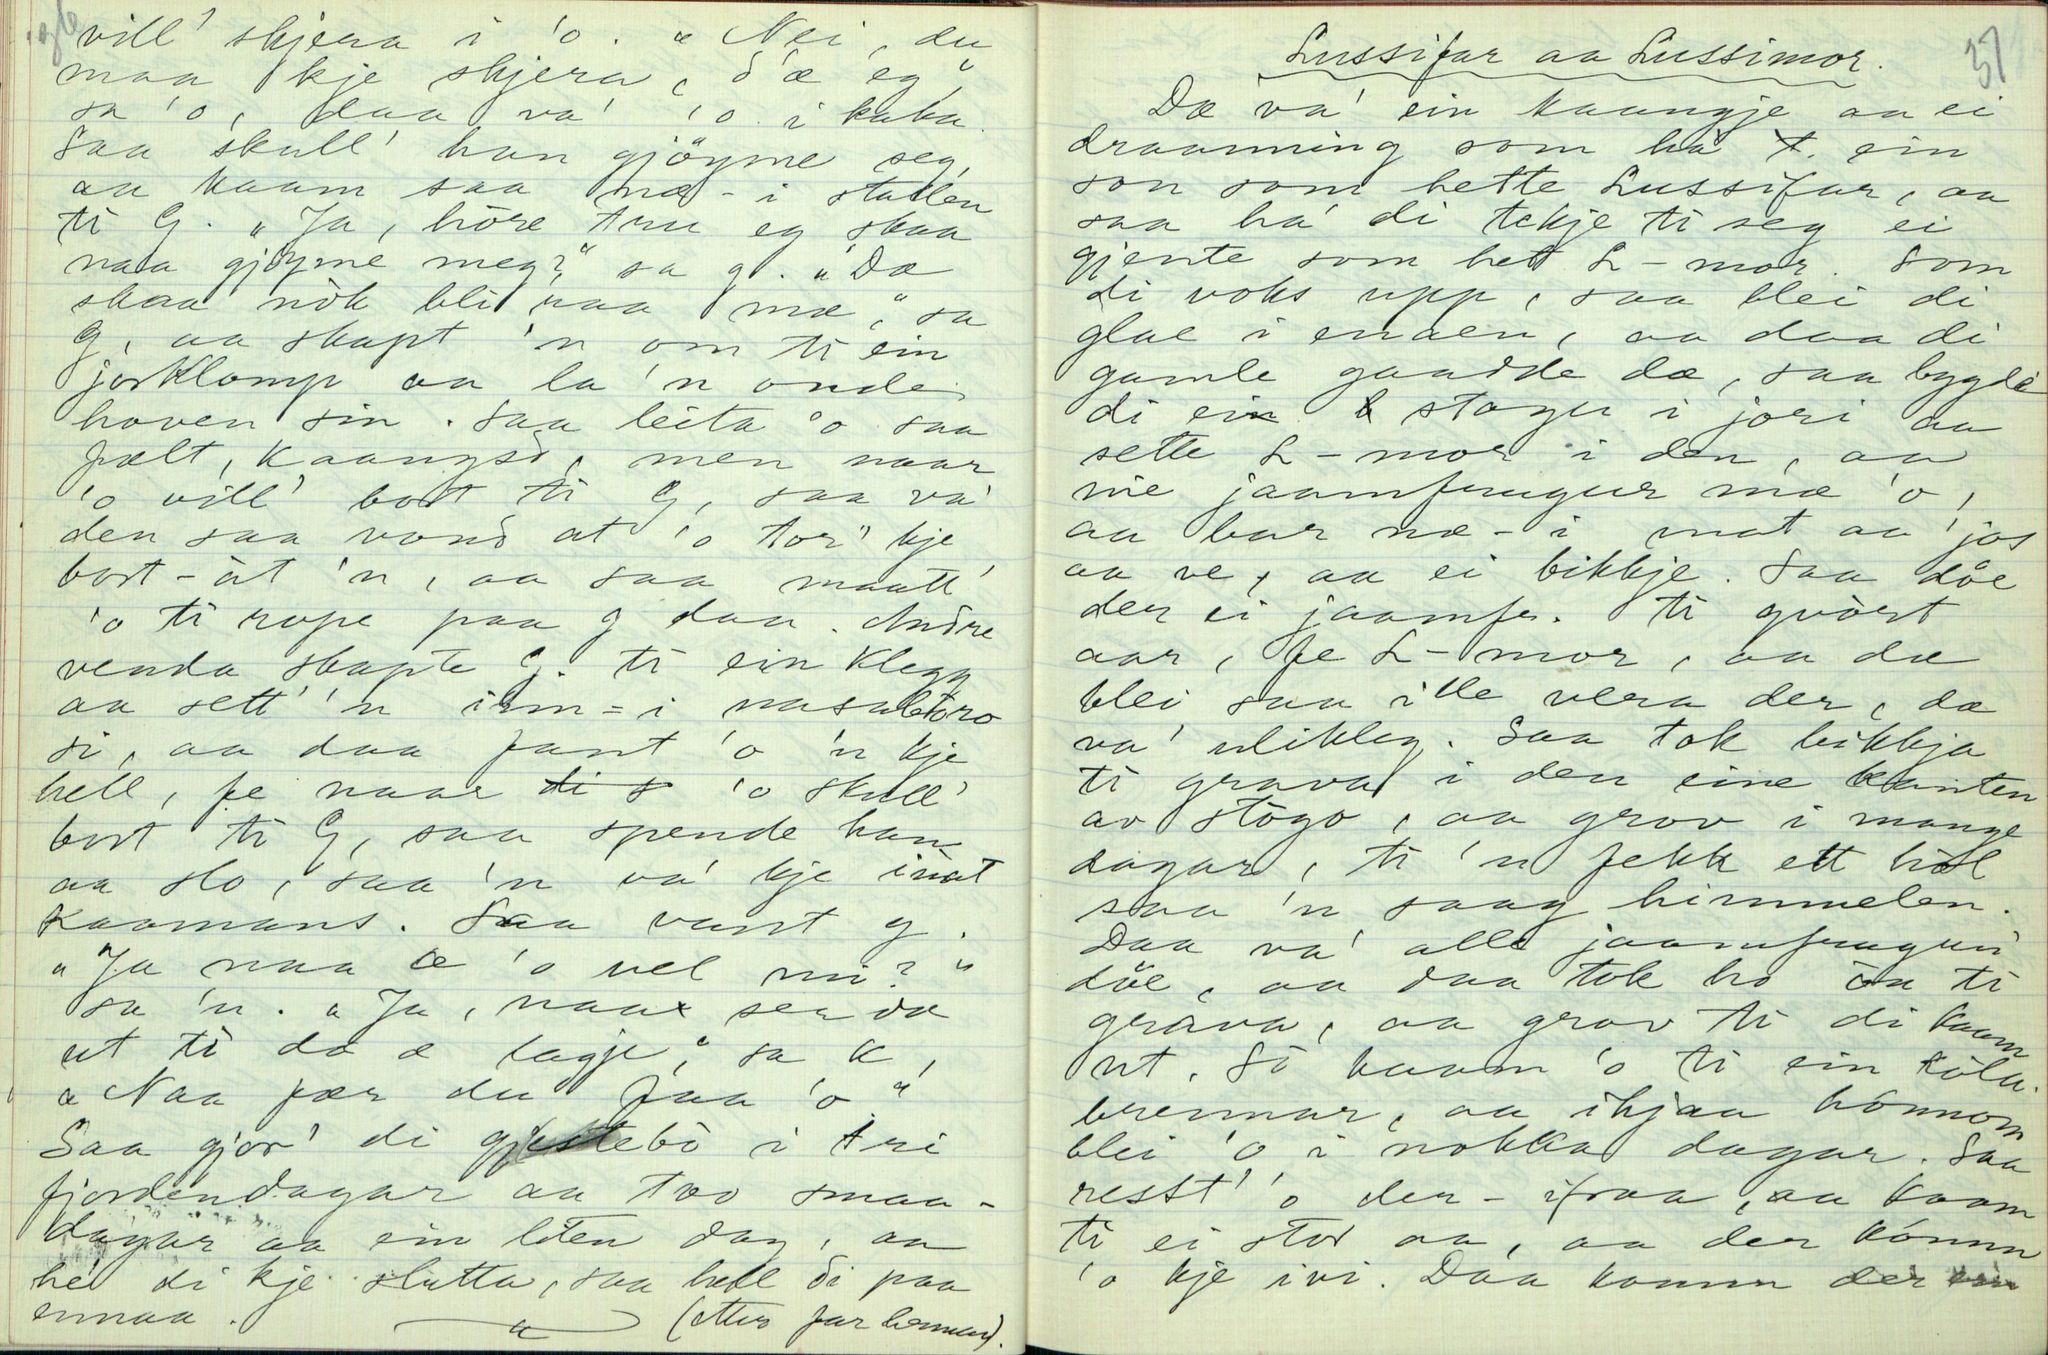 vill' skjera i 'o. "Nei, du
maa kje skjera, d'æ eg"
sa 'o, daa va' 'o i kaka.
Saa skull' han gjöyme seg,
aa kaam saa næ-i stallen
ti G. "Ja, höre tru eg skaa
naa gjöyme meg?" sa g. "Dæ
skaa nòk bli raa mæ," sa
G, aa skapt 'n om ti ein
jorklomp aa la 'n onde
hoven sin. Saa leita 'o saa
fælt, Kaangsd, men naar
'o vill' bort ti G, saa va'
den saa vond at 'o tor' kje
bort-åt 'n, aa saa maatt'
'o ti rope paa g daa. Andre
venda skapte G. ti ein klegg
aa sett' 'n inn-i nasabòro
si, aa daa fant 'o 'n kje
hell, fe naar 'o skull'
bort ti G, saa spende han
aa slo, saa 'n va' kje inåt
kaamans. Saa vant g.
"Ja naa æ 'o vel mi?"
sa 'n. "Ja, naa ser dæ
ut ti dæ æ lagje," sa K,
"Naa fær du faa 'o"
Saa gjor' di gjestebò i tri
fjordendagar aa tvo smaa-
dagar aa ein liten dag, aa
he' di kje slutta, saa hell di paa
ennaa. (etter far hennar).
37
Lussifar aa Lussimor.
Dæ va' ein kaangje aa ei
draanning som ha' ein
son som hette Lussifar, aa
saa ha' di tekje ti seg ei
gjente som het L-mor. Som
di voks upp, saa blei di
glae i enaen, aa daa di
gamle gaadde dæ, saa bygde
di ei stogu i jori aa
sette L-mor i den, aa
nie jaamfrugur mæ 'o,
aa bar næ-i mat aa jos
aa ve, aa ei bikkje. Saa döe
der ei jaamfr. ti qvòrt
aar, fe L-mor, aa dæ
blei saa ille vera der, dæ
va' ulikleg. Saa tok bikkja
ti grava i den eine kanten
av stògo, aa grov i mange
dagar, ti 'n fekk ett hòl
saa 'n saag himmelen.
Daa va' alle jaamfrugun
döe, aa daa tok ho òa ti
grava, aa grov ti di kaam
ut. Så kaam 'o ti ein kòla-
brennar, aa ihjaa hònnom
blei 'o i nokka dagar. Saa
resst' 'o der-ifraa, aa kaam
ti ei stor aa, aa der kònnn
'o kje ivi. Daa komm der ein